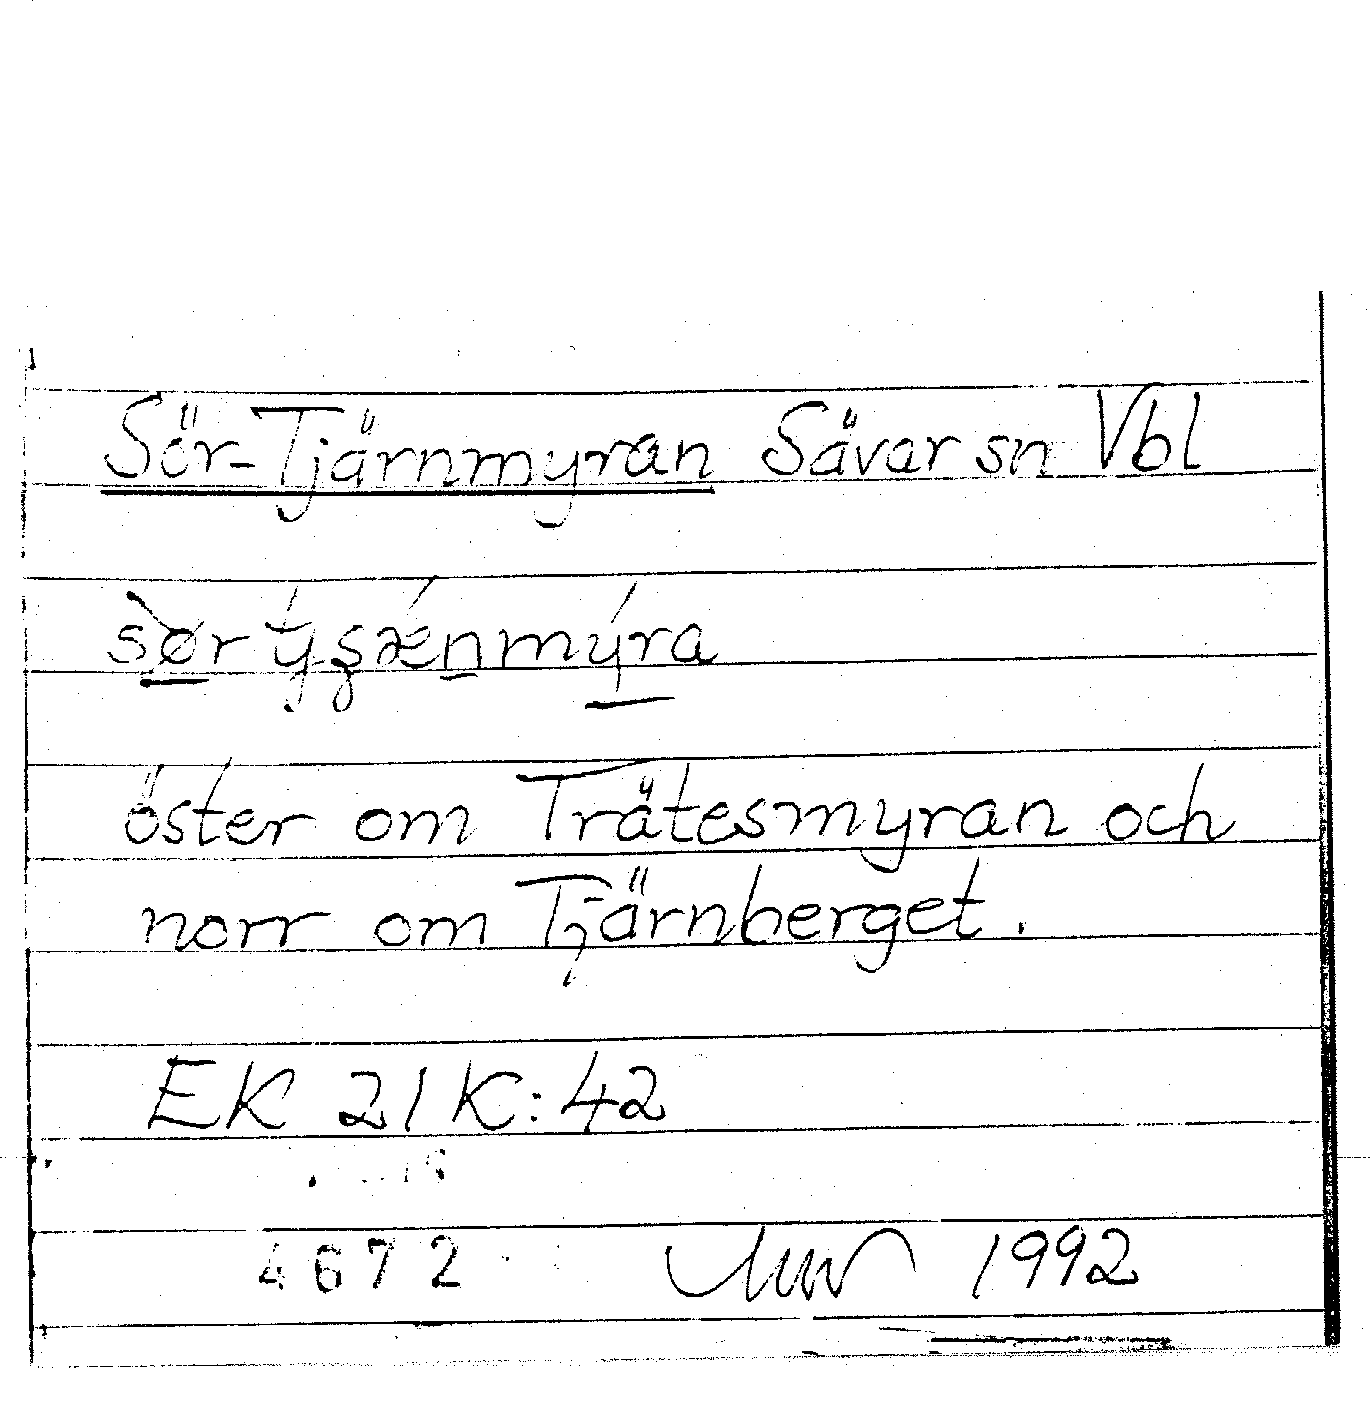 Sör-Tjärnmyran Sävar sn Vbl
öster om Trätesmyran och
norr om Tjärnberget.
EK 21 K:42
4672 1992